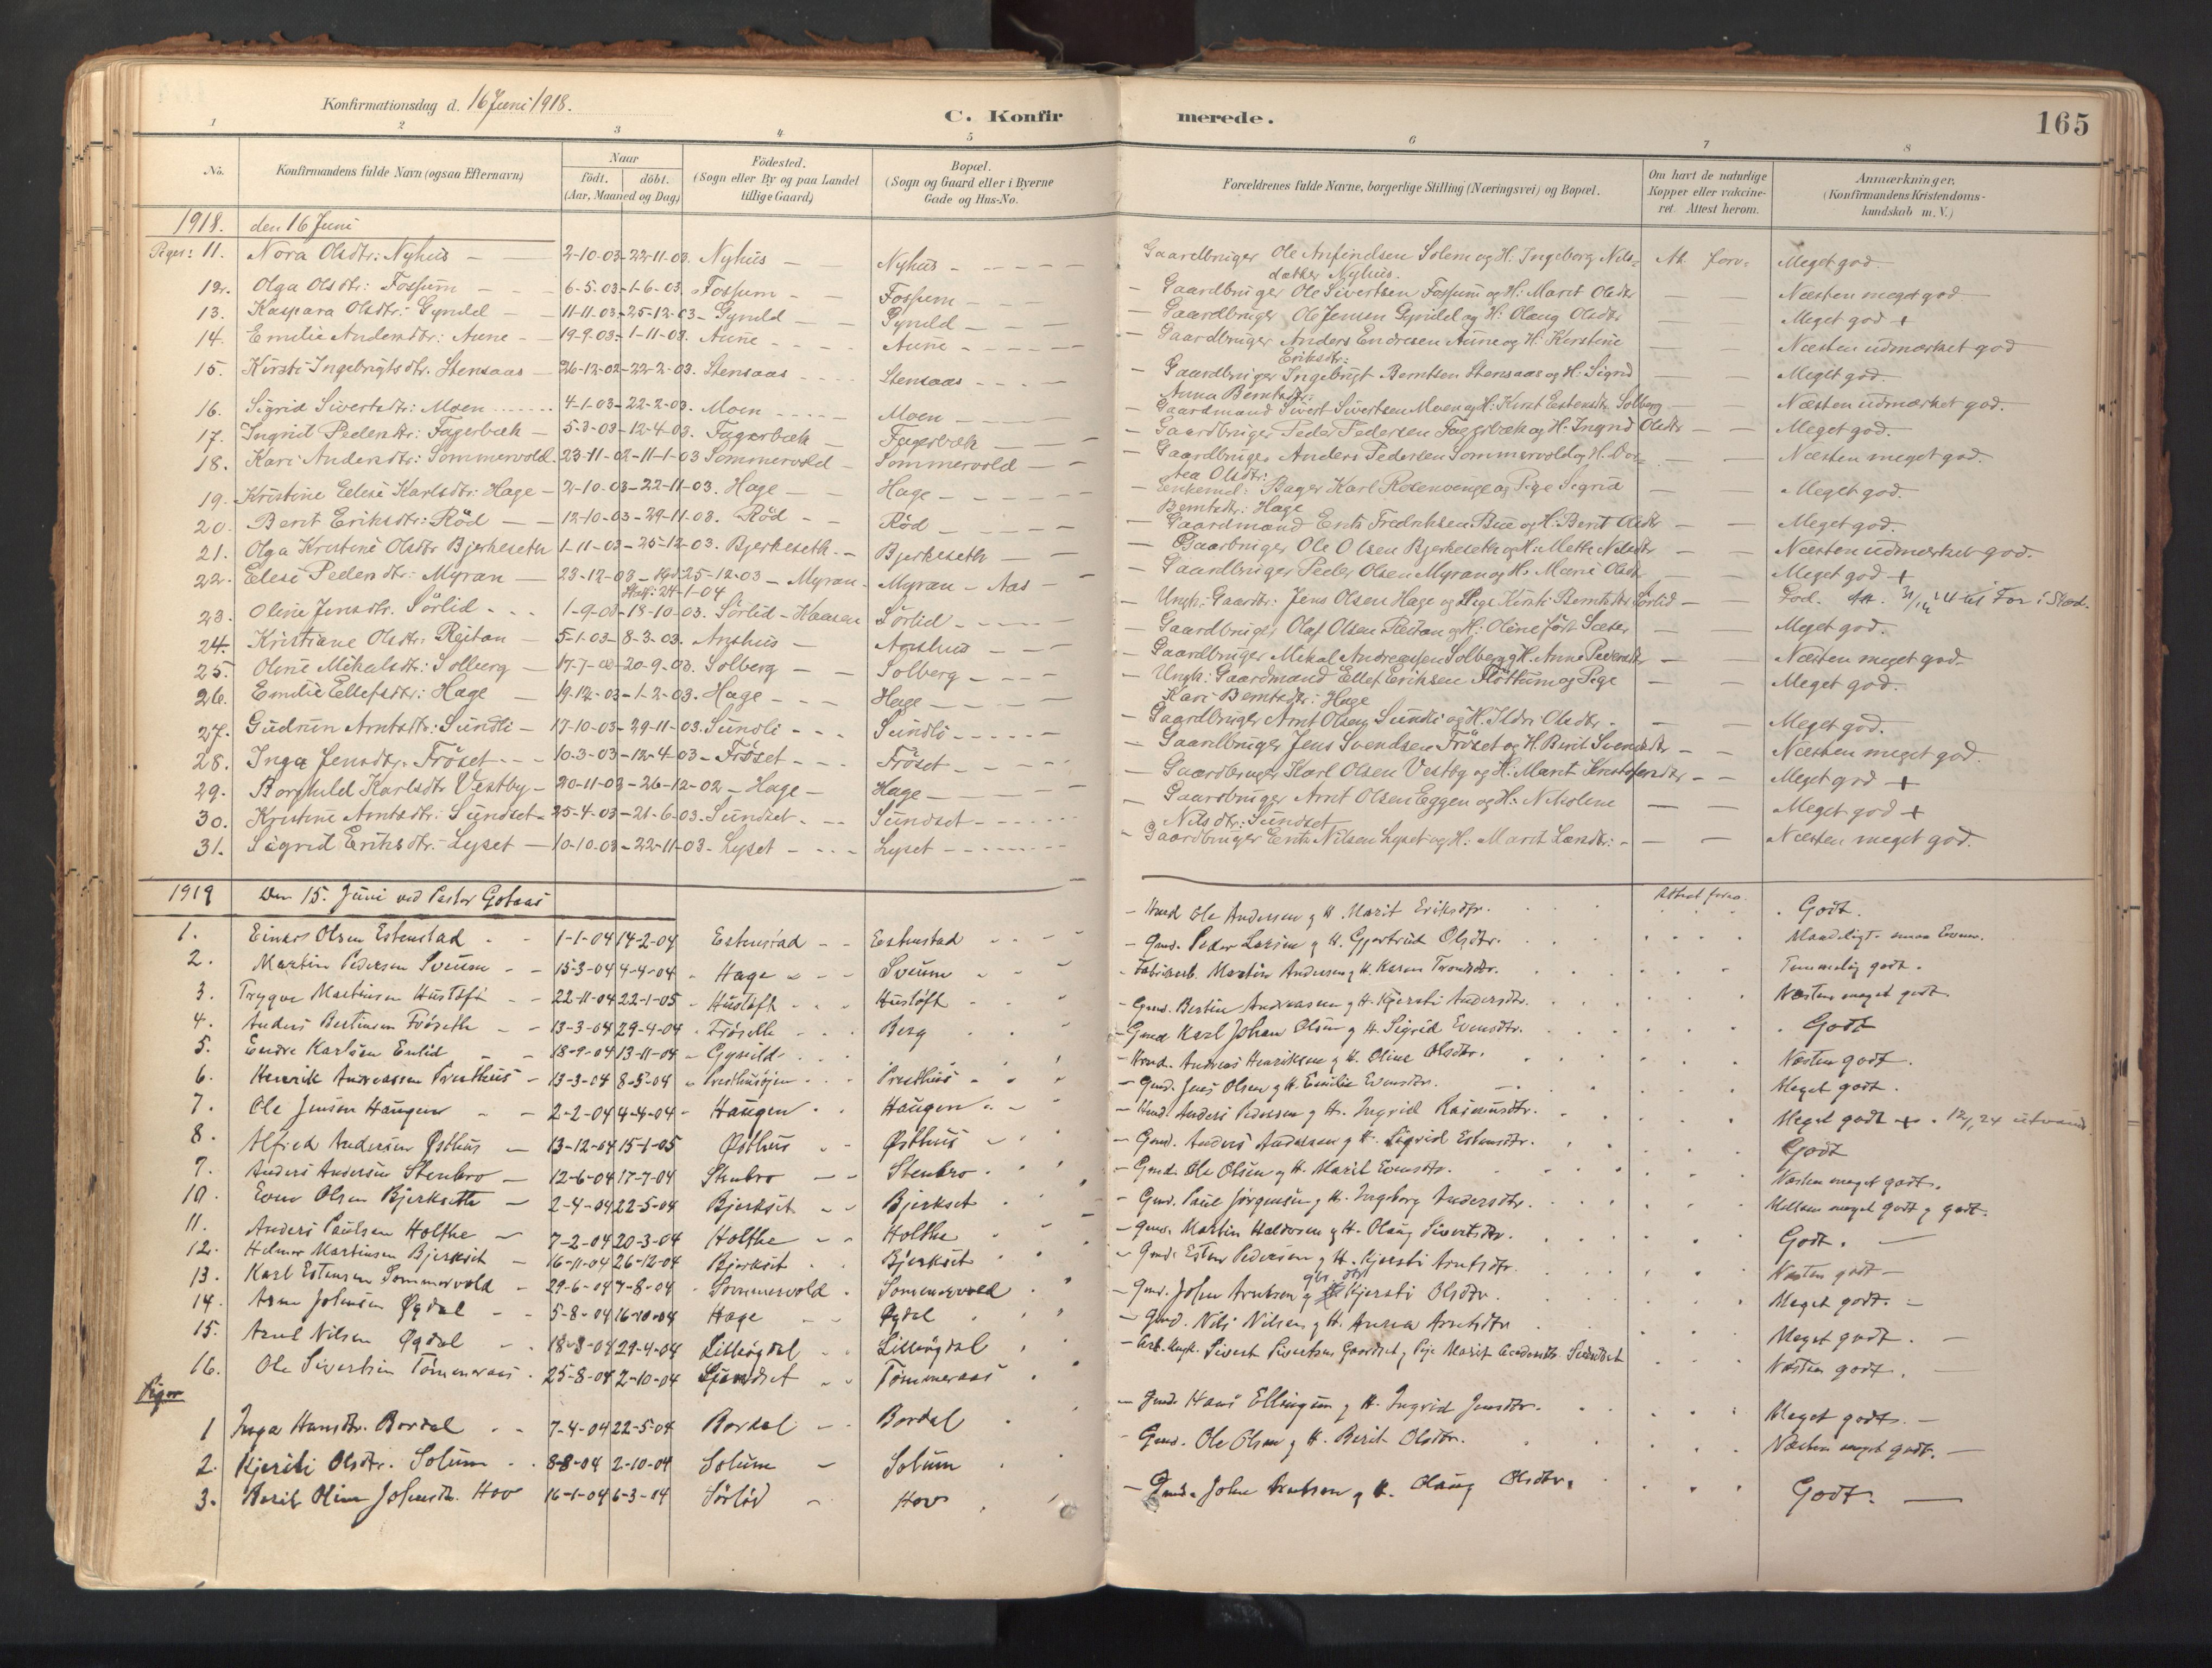 Konfirmationsdag d. 16 Juni 1918.
C. Konfirmerede.
165
1 2 3 4 5 6 7 8
No. Konfirmandens fulde Navn (ogsaa Efternavn) Naar födt. döbt. (Aar, Maaned og Dag) Födested. (Sogn eller By og paa Landet tillige Gaard) Bopæl. (Sogn og Gaard eller i Byerne Gade og Hus-No. Forældrenes fulde Navne, borgerlige Stilling (Næringsvei) og Bopæl. Om havt de naturlige Kopper eller vaccineret. Attest herom. Anmærkninger. (Konfirmandens Kristendomskundskab m. V.)
1918. den 16 Juni
Piger: 11. Nora Olsdtr: Nyhus 2-10-03 - 22-11-03. Nyhus Nyhus Gaardbruger Ole Anfindsen Solem og H: Ingeborg Nilsdatter Nyhus. At. forv. Meget god.
12. Olga Olsdtr: Fossum 6-5-03 - 1-6-03. Fossum Fossum Gaardbruger Ole Sivertsen Fossum og H: Marit Olsdtr Næsten meget god.
13. Kaspara Olsdtr: Gynild 11-11-03 - 25-12-03 Gynild Gynild Gaardbruger Ole Jensen Gynild og H: Olaug Olsdtr Meget god +
14. Emelie Andersdtr: Aune 19-9-03 - 1-11-03. Aune Aune Gaardbruger Anders Endresen Aune og H: Kirstine Eriksdtr: Næsten udmærket god
15. Kirsti Ingebrigtsdtr. Stensaas 26-12-02 - 22-2-03. Stensaas Stensaas Gaardbruger Ingebrigt Berntsen Stensaas og H: Sigrid Anna Berntsdtr: Meget god.
16. Sigrid Sivertsdtr: Moen 4-1-03 - 22-2-03. Moen Moen Gaardmand Sivert Sivertsen Moen og H: Kirst Estensdtr Solberg Næsten udmærket god.
17. Ingrid Pedersdtr: Fagerbæk 5-3-03 - 12-4-03. Fagerbæk Fagerbæk Gaardbruger Peder Pedersen Fagerbæk og H: Ingrid Olsdtr Meget god.
18. Kari Andersdtr: Sommervold. 23-11-02 - 11-1-03 Sommervold Sommervold Gaardbruger Anders Pedersen Sommervold og H. Dortea Olsdtr: Næsten meget god.
19. Kristine Elese Karlsdtr: Hage 2-10-03 - 22-11-03. Hage Hage Enkemd: Bager Karl Rosenvenge og Pige Sigrid Berntsdtr: Hage Meget god.
20. Berit Eriksdtr: Röd 12-10-03 - 29-11-03. Röd Röd Gaardmand Erik Fredriksen Bue og H: Berit Olsdtr Meget god.
21. Olga Kristine Olsdtr Bjerkeseth 1-11-03 - 25-12-03. Bjerkeseth Bjerkeseth Gaarbruger Ole Olsen Bjerkeseth og H: Mette Nilsdtr Næsten udmærket god.
22. Elese Pedersdtr: Myran 23-12-03 - Hjd: 25-12-03 Stadf: 24-1-04 Myran Myran - Aas Gaardbruger Peder Olsen Myran og H: Marie Olsdtr Meget god +
23. Oline Jensdtr. Sörlid 1-9-03 - 18-10-03. Sörlid - Haasen Sörlid Ungk: Gaardbr: Jens Olsen Hage og Pige Kirsti Berntsdtr Sörlid God.
24. Kristiane Olsdtr: Reitan 5-1-03 - 8-3-03. Anshus Anshus Gaardbruger Olaf Olsen Reitan og H: Oline født Sæter Meget god.
25. Oline Mikalsdtr: Solberg 17-7-02 - 20-9-03. Solberg Solberg Gaardbruger Mikal Andreassen Solberg og H. Anne Pedersdtr Næsten meget god.
26. Emelie Ellefsdtr: Hage 19-12-03 - 1-2-03. Hage Hage Ungk: Gaardmand Ellef Eriksen Fløttum og Pige Kari Berntsdtr: Hage Meget god.
27. Gudrun Arntsdtr: Sundli 17-10-03 - 29-11-03. Sundli Sundli Gaardbruger Arnt Olsen Sundli og H. Ildri Olsdtr Meget god.
28. Inga Jensdtr. Fröset 10-3-03 - 12-4-03 Fröset Fröset Gaardbruger Jens Svendsen Fröset og H. Berit Svendsdtr Næsten meget god.
29. Borghild Karlsdtr Vestby 20-11-03 - 26-12-02 Hage Hage Gaardbruger Karl Olsen Vestby og H: Marit Kristofersdtr Meget god +
30. Kristine Arntsdtr: Sundset 25-4-03 - 21-6-03. Sundset Sundset Gaardbruger Arnt Olsen Eggen og H: Nikoline Nilsdtr: Sundset Meget god +
31. Sigrid Eriksdtr. Lyset 10-10-03 - 22-11-03 Lyset Lyset Gaardbruger Erik Nilsen Lyset og H: Marit Larsdtr: Næsten meget god.
1919 Den 15. Juni ved Pastor Gotaas Attest forev.
1. Einar Olsen Estenstad 1-1-04 14-2-04 Estenstad Estenstad Hmd Ole Andersen g H. Marit Eriksdtr. Godt.
2. Martin Pedersen Sveum 15-3-04 4-4-04 Hage Sveum Gmd. Peder Larsen g H. Gjertrud Olsdtr. Maadeligt. smaa Evner.
3. Trygve Martinsen Hustöft 22-11-04 22-1-05 Hustöft Hustöft Fabrikarb. Martin Andersen g H. Karen Trondsdtr. Temmelig godt.
4. Anders Bertinsen Fröseth 13-3-04 29-4-04 Fröseth Berg Gmd. Bertin Andreasen g H. Kjersti Andersdtr. Næsten meget godt
5. Endre Karlsen Enlid 18-9-04 13-11-04 Gynild Gmd Karl Johan Olsen g H. Sigrid Evensdtr. Godt
6. Henrik Andreassen Presthus 13-3-04 8-5-04 Presthusøien Presthus Hmd. Andreas Henriksen g H. Oline Olsdtr. Næsten godt.
7. Ole Jensen Haugen 2-2-04 4-4-04 Haugen Haugen Gmd. Jens Olsen g H. Emilie Evensdtr. Meget godt.
8. Alfred Andersen Østhus 13-12-04 15-1-05 Østhus Østhus Hmd. Anders Pedersen g H. Ingrid Rasmusdtr. Meget godt + . 12/24 utvand.
9. Anders Andersen Stenbro 12-6-04 17-7-04 Stenbro Stenbro Gmd. Anders Andersen g H. Sigrid Estensdtr. Godt
10. Even Olsen Bjerkseth 2-4-04 22-5-04 Bjerkset Bjerkset Gmd. Ole Olsen g H. Marit Evensdtr. Næsten meget godt.
11. Anders Paulsen Holthe 7-2-04 20-3-04 Holthe Holthe Gmd. Paul Jörgensen g H. Ingeborg Andersdtr. Mellem meget godt g godt.
12. Helmer Martinsen Bjerkset 16-11-04 26-12-04 Bjerkset Bjerkset Gmd. Martin Haldorsen g H. Olaug Sivertsdtr. Godt.
13. Karl Estensen Sommervold 29-6-04 7-8-04 Sommervold Sommervold Gmd. Esten Pedersen g H. Kjersti Arntsdtr. Næsten godt
14. Arne Johnsen Øgdal 5-8-04 16-10-04 Hage Øgdal Gmd. John Arntsen g Kjersti Olsdtr. Meget godt.
15. Arnt Nilsen Øgdal 18-3-04 29-4-04 Lilleögdal Lilleögdal Gmd. Nils Nilsen g H. Anna Arntsdtr Meget godt.
16. Ole Sivertsen Tömmeraas 25-8-04 2-10-04 Tömmeraas Arb. Ungk. Sivert Sivertsen g Pige Marit Næsten godt.
Piger
1 Inga Hansdtr. Bordal 7-4-04 22-5-04 Bordal Bordal Gmd. Hans Ellingsen g H. Ingrid Jensdtr. Meget godt.
2. Kjersti Olsdtr. Solum 8-8-04 2-10-04 Solum Solum Gmd. Ole Olsen g H. Berit Olsdtr. Næsten meget godt.
3. Berit Oline Johnsdtr. Hov 16-1-04 6-3-04 Sörlid Hov Gmd. John Arntsen g H. Olaug Olsdtr. Godt.